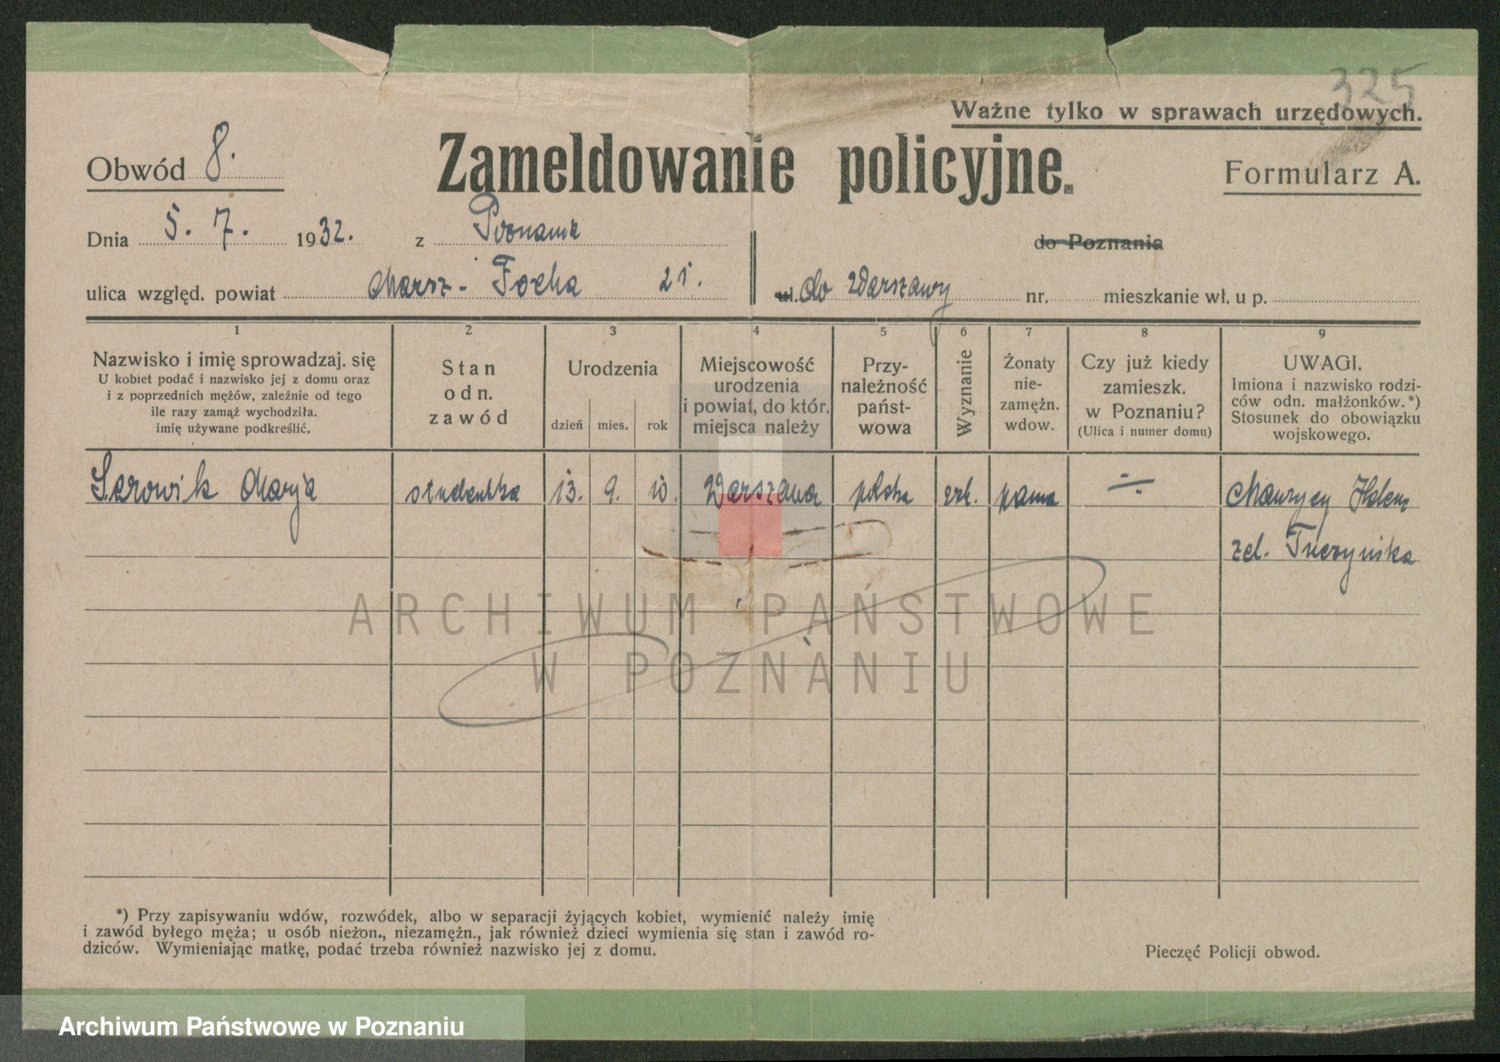 325
Ważne tylko w sprawach urzędowych.
Obwód 8.
Zameldowanie policyjne.
Formularz A.
Dnia 5. 7. 1932. z Poznania
do Poznania
ulica względ. powiat Marsz. Focha 21.
ul. do Warszawy nr. mieszkanie wł. u p.
1 2 3 4 5 6 7 8 9
Nazwisko i imię sprowadzaj. się
U kobiet podać i nazwisko jej z domu oraz
i z poprzednich mężów, zależnie od tego
ile razy zamąż wychodziła.
imię używane podkreślić.
Stan
odn.
zawód
Urodzenia
dzień mies. rok
Miejscowość
urodzenia
i powiat, do któr.
miejsca należy
Przy-
należność
państ-
wowa
Wyznanie
Żonaty
nie-
zamężn.
wdow.
Czy już kiedy
zamieszk.
w Poznaniu?
(Ulica i numer domu)
UWAGI.
Imiona i nazwisko rodzi-
ców odn. małżonków.*)
Stosunek do obowiązku
wojskowego.
Marja studentka 13. 9. 10. Warszawa polska panna Maurycy Helena
*) Przy zapisywaniu wdów, rozwódek, albo w separacji żyjących kobiet, wymienić należy imię
i zawód byłego męża; u osób nieżon., niezamężn., jak również dzieci wymienia się stan i zawód ro-
dziców. Wymieniając matkę, podać trzeba również nazwisko jej z domu.
Pieczęć Policji obwod.
ARCHIWUM PAŃSTWOWE
W POZNANIU
Archiwum Państwowe w Poznaniu